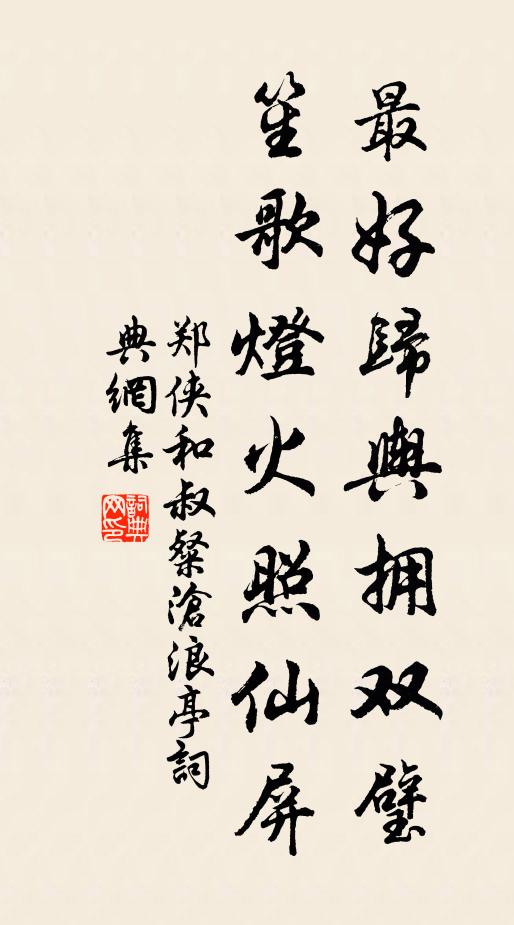 最好歸輿拥双璧
笙歌燈火照仙屏
郑侠和叔粲滄浪亭詞
典網集
詞典网印